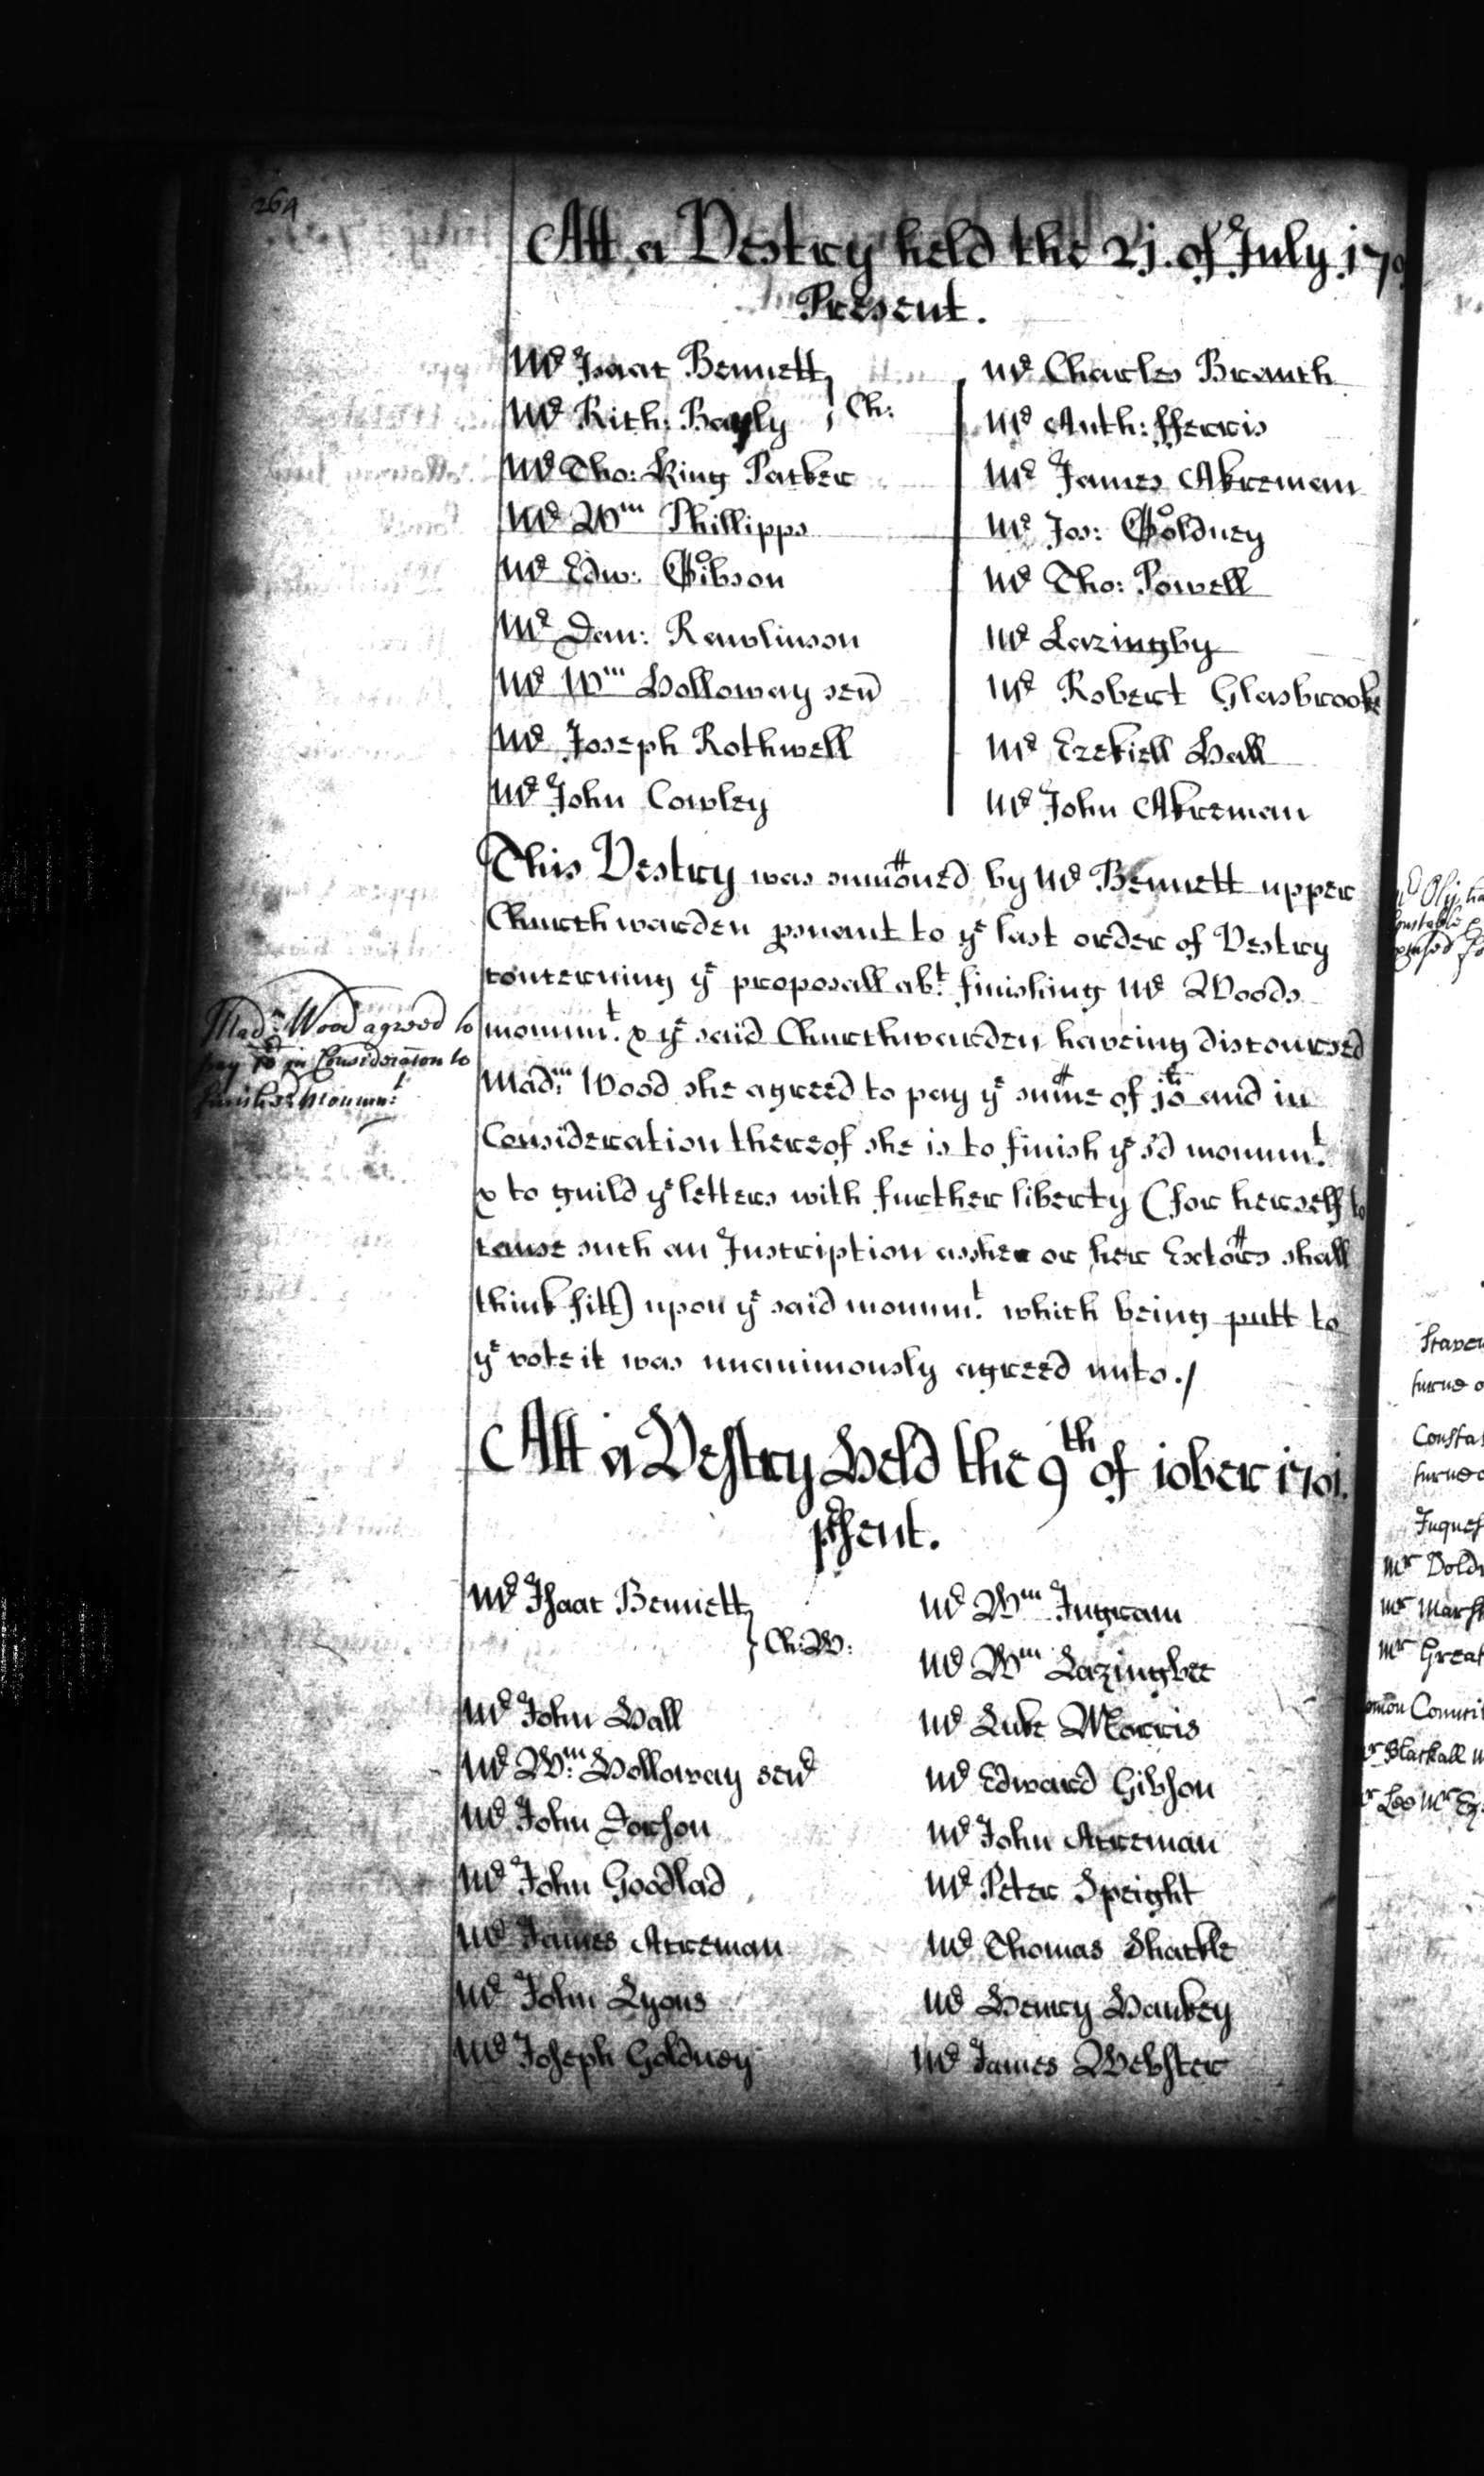 264
Att a Vestry held the 21. of July 170
Present.
Mr Isaac Bennett
Mr Rich: Bayly } Ch:
Mr Tho: King Packer
Mr Wm Phillipps
Mr Edw: Gibson
Mr Dan: Rawlinson
Mr Wm Holloway senr
Mr Joseph Rothwell
Mr John Cowley
Mr Charles Branch
Mr Anth: fferris
Mr James Akreman
Mr Jos: Goldney
Mr Tho: Powell
Mr Lazingby
Mr Robert Glasbrooke
Mr Ezekiell Hall
Mr John Akreman
This Vestry was sumoned by Mr Bennett upper
Churchwarden psuant to ye last order of Vestry
concerning ye proposall abt. finishing Mr Woods
monumt. & ye said Churchwarden haveing discoursed
Madm. Wood she agreed to pay ye sume of 10 and in
Consideration thereof she is to finish ye sd monumt.
& to guild ye letters with further liberty (for herself to
cause such an Inscription as she or her Extors shall
think fitt) upon ye said monumt. which being putt to
ye vote it was unanimously agreed unto./
Madm. Wood agreed to
pay 10 in Consideration to
finish ye Monumt.
Att a Vestry Held the 9th of iober 1701.
psent.
Mr Isaac Bennett } Ch:W:
Mr John Hall
Mr Wm. Holloway senr
Mr John Jorson
Mr John Goodlad
Mr James Acreman
Mr John Lyons
Mr Joseph Goldney
Mr Wm Ingram
Mr Wm Lazingbee
Mr Luke Morris
Mr Edward Gibson
Mr John Acreman
Mr Peter Speight
Mr Thomas Shackle
Mr Henry Hankey
Mr James Webster